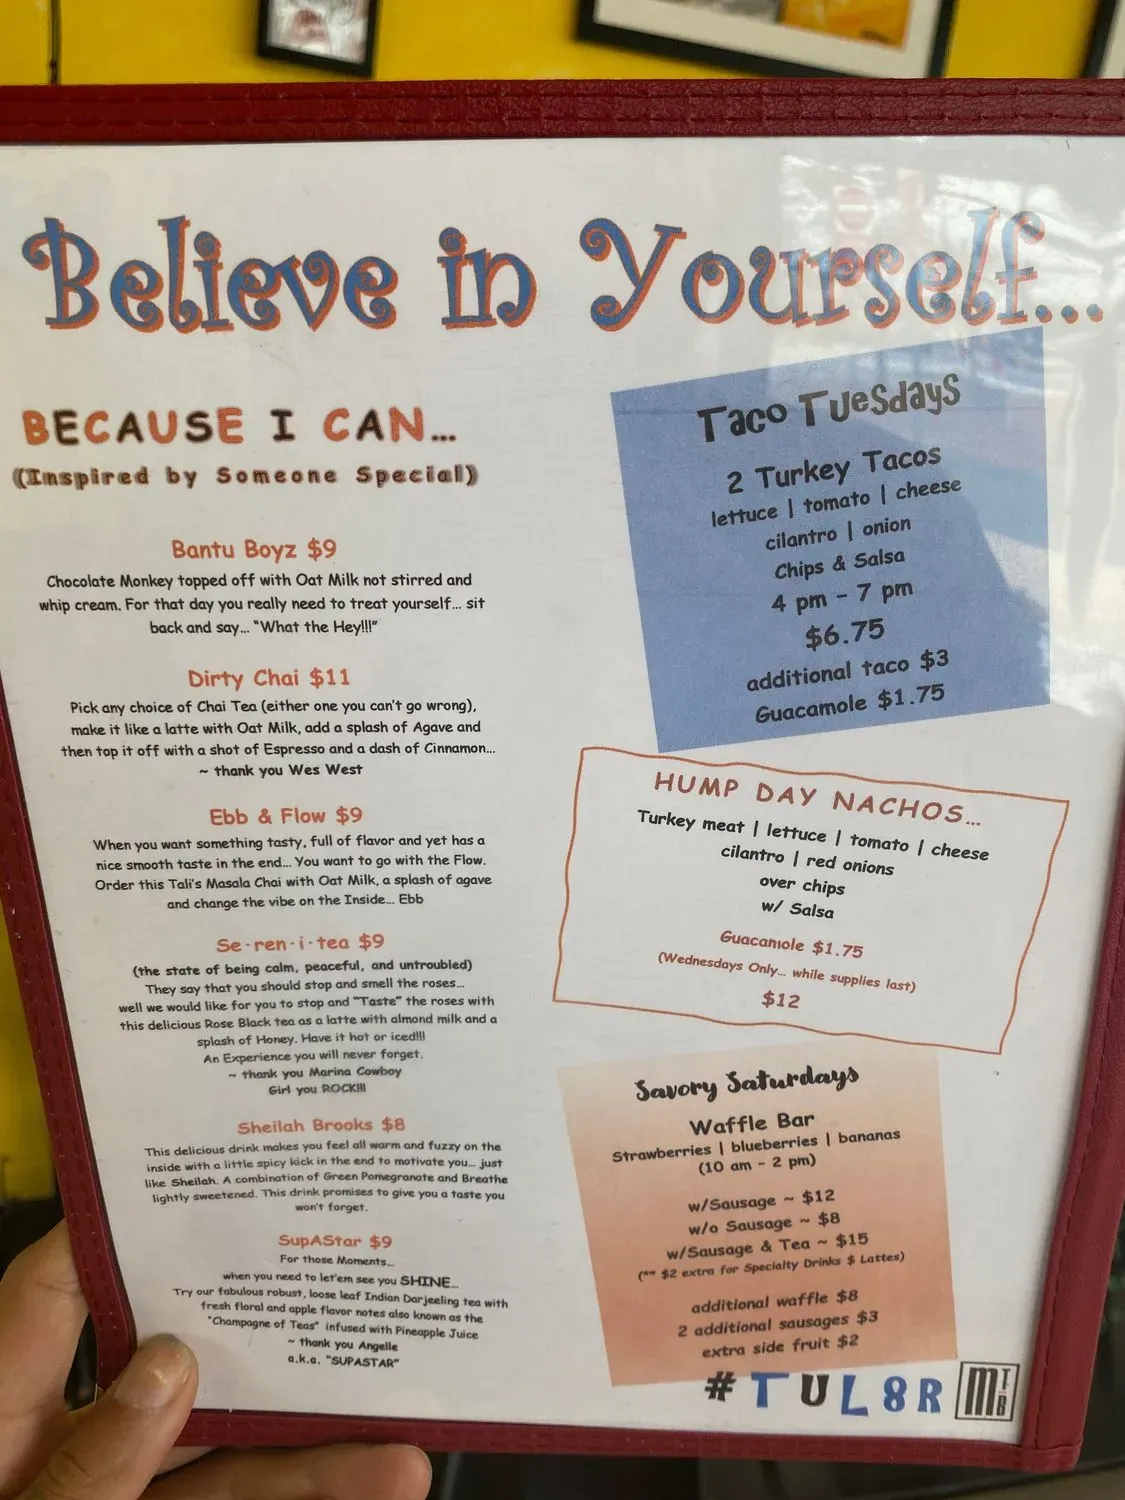 Believe in Yourself...
BECAUSE I CAN...
(Inspired by Someone Special)
Bantu Boyz $9
Chocolate Monkey topped off with Oat Milk not stirred and
whip cream. For that day you really need to treat yourself... sit
back and say... "What the Hey!!!"
Dirty Chai $11
Pick any choice of Chai Tea (either one you can't go wrong),
make it like a latte with Oat Milk, add a splash of Agave and
then top it off with a shot of Espresso and a dash of Cinnamon...
~ thank you Wes West
Ebb & Flow $9
When you want something tasty, full of flavor and yet has a
nice smooth taste in the end... You want to go with the Flow.
Order this Tali's Masala Chai with Oat Milk, a splash of agave
and change the vibe on the Inside... Ebb
Se·ren·i·tea $9
(the state of being calm, peaceful, and untroubled)
They say that you should stop and smell the roses...
well we would like for you to stop and "Taste" the roses with
this delicious Rose Black tea as a latte with almond milk and a
splash of Honey. Have it hot or iced!!!
An Experience you will never forget.
~ thank you Marina Cowboy
Girl you ROCK!!!
Sheilah Brooks $8
This delicious drink makes you feel all warm and fuzzy on the
inside with a little spicy kick in the end to motivate you... just
like Sheilah. A combination of Green Pomegranate and Breathe
lightly sweetened. This drink promises to give you a taste you
won't forget.
SupAStar $9
For those Moments...
when you need to let'em see you SHINE...
Try our fabulous robust, loose leaf Indian Darjeeling tea with
fresh floral and apple flavor notes also known as the
"Champagne of Teas" infused with Pineapple Juice
~ thank you Angelle
a.k.a. "SUPASTAR"
Taco Tuesdays
2 Turkey Tacos
lettuce | tomato | cheese
cilantro | onion
Chips & Salsa
4 pm - 7 pm
$6.75
additional taco $3
Guacamole $1.75
HUMP DAY NACHOS...
Turkey meat | lettuce | tomato | cheese
cilantro | red onions
over chips
w/ Salsa
Guacamole $1.75
(Wednesdays Only... while supplies last)
$12
Savory Saturdays
Waffle Bar
Strawberries | blueberries | bananas
(10 am - 2 pm)
w/Sausage ~ $12
w/o Sausage ~ $8
w/Sausage & Tea ~ $15
(** $2 extra for Specialty Drinks $ Lattes)
additional waffle $8
2 additional sausages $3
extra side fruit $2
#TUL8R MTB